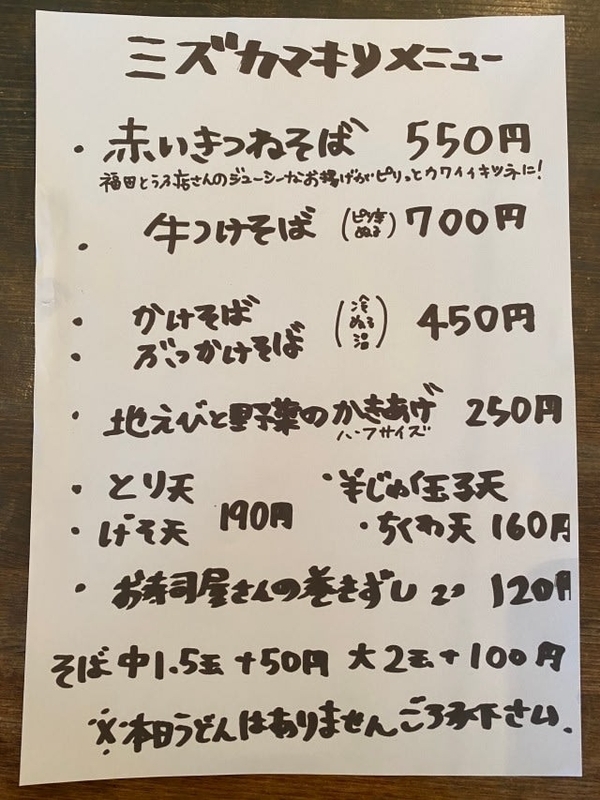 ミズカマキリメニュー
・赤いきつねそば 550円
福田とうふ店さんのジューシーなお揚げがピリっとカワイイキツネに!
・牛つけそば (ピリ辛 ぬる) 700円
・かけそば (冷 ぬる 温) 450円
・ぶっかけそば
・地えびと野菜のかきあげ 250円
ハーフサイズ
・とり天 ・半じゅく玉子天
・げそ天 190円 ・ちくわ天 160円
・お寿司屋さんの巻きずし 2コ 120円
そば中1.5玉+50円 大2玉+100円
※本日うどんはありませんご了承下さい。